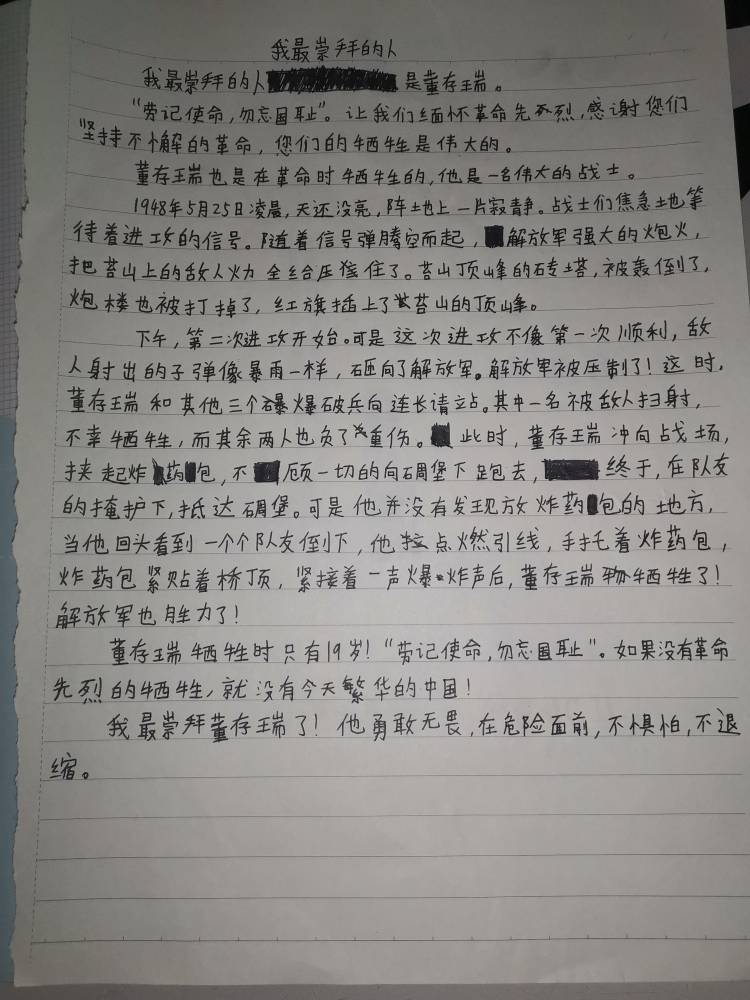 我最崇拜的人
我最崇拜的人是董存瑞。
“劳记使命,勿忘国耻”。让我们缅怀革命先烈,感谢您们
坚持不懈的革命,您们的牺牲是伟大的。
董存瑞也是在革命时牺牲的,他是一名伟大的战士。
1948年5月25日凌晨,天还没亮,阵地上一片寂静。战士们焦急地等
待着进攻的信号。随着信号弹腾空而起,解放军强大的炮火,
把苔山上的敌人火力全给压住了。苔山顶峰的砖塔,被轰倒了,
炮楼也被打掉了,红旗插上了苔山的顶峰。
下午,第二次进攻开始。可是这次进攻不像第一次顺利,敌
人射出的子弹像暴雨一样,砸向了解放军。解放军被压制了!这时,
董存瑞和其他三个爆破兵向连长请站。其中一名被敌人扫射,
不幸牺牲,而其余两人也负了重伤。此时,董存瑞冲向战场,
挟起炸药包,不顾一切的向碉堡下跑去,终于,在队友
的掩护下,抵达碉堡。可是他并没有发现放炸药包的地方,
当他回头看到一个个队友倒下,他点燃引线,手托着炸药包,
炸药包紧贴着桥顶,紧接着一声爆炸声后,董存瑞牺牲了!
解放军也胜力了!
董存瑞牺牲时只有19岁!“劳记使命,勿忘国耻”。如果没有革命
先烈的牺牲,就没有今天繁华的中国!
我最崇拜董存瑞了!他勇敢无畏,在危险面前,不惧怕,不退
缩。